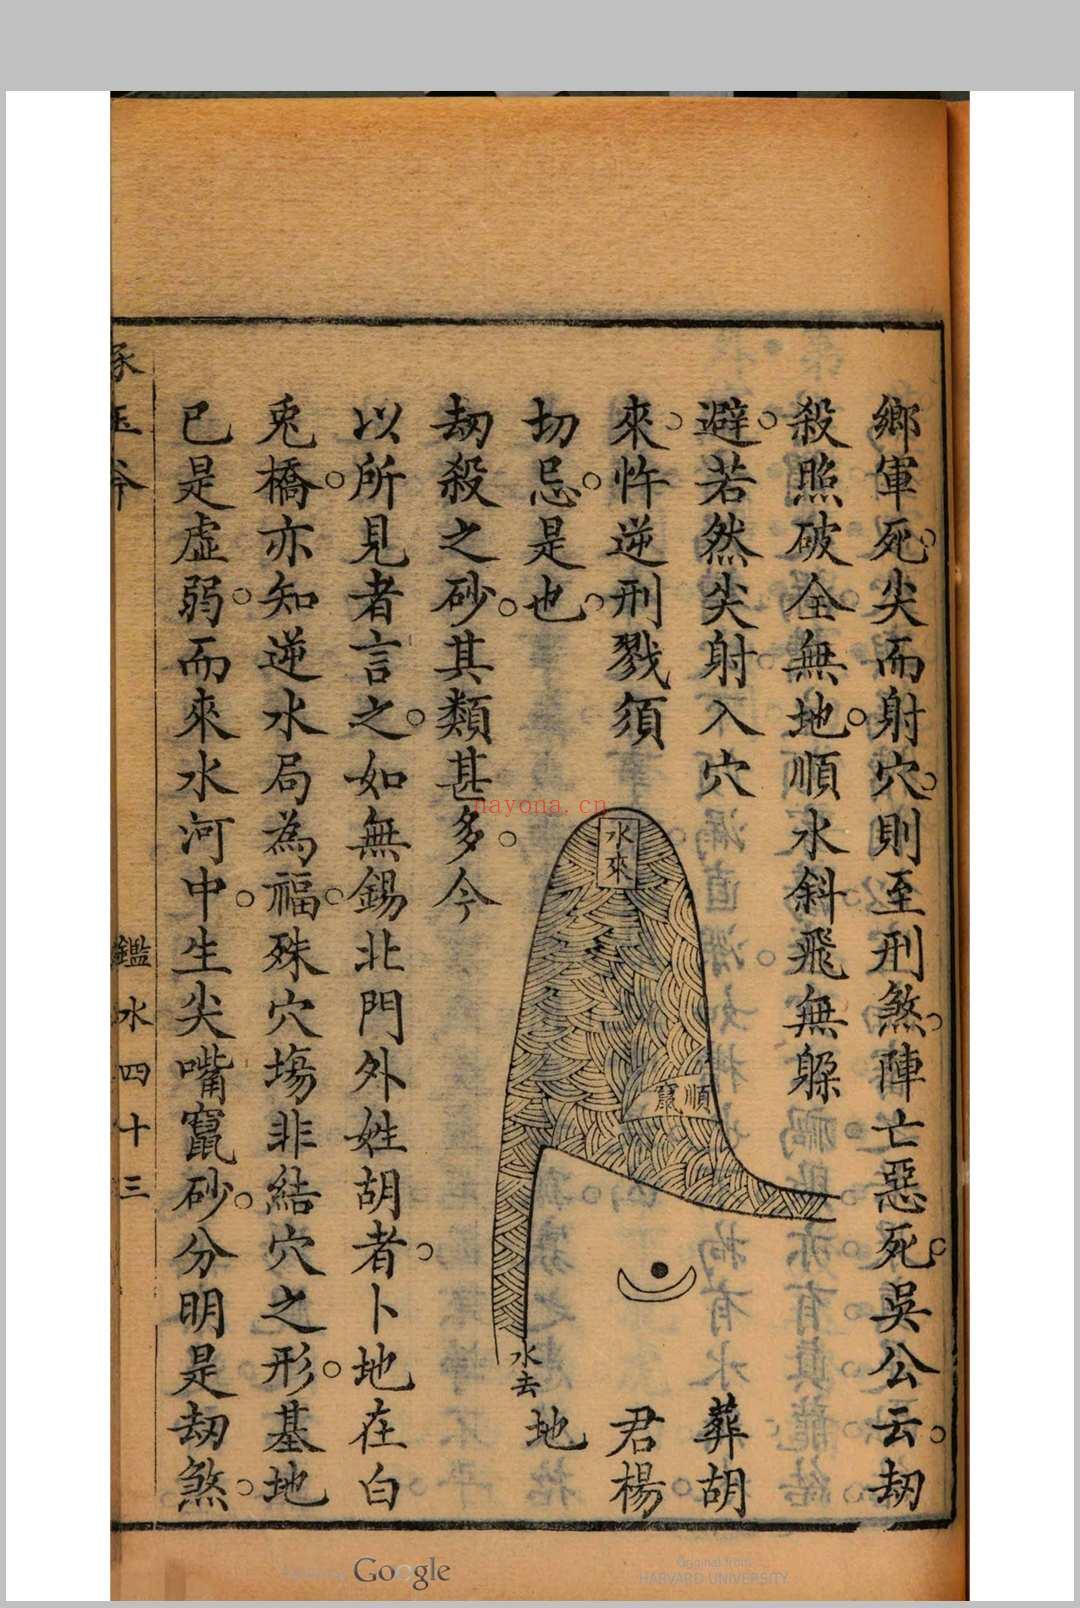 鄉軍死尖而射穴則至刑煞陣亡惡死吳公云刼
殺照破全無地順水斜飛無躱
避若然尖射入穴
葬胡
來忤逆刑戮須
君楊
切忌是也
地
水來
順竄
水去
刼殺之砂其類甚多今
以所見者言之如無錫北門外姓胡者卜地在白
兎橋亦知逆水局為福殊穴塲非結穴之形基地
已是虛弱而來水河中生尖嘴竄砂分明是刼煞
鑑水四十三
nayona.cn
Google
Original from
HARVARD UNIVERSITY